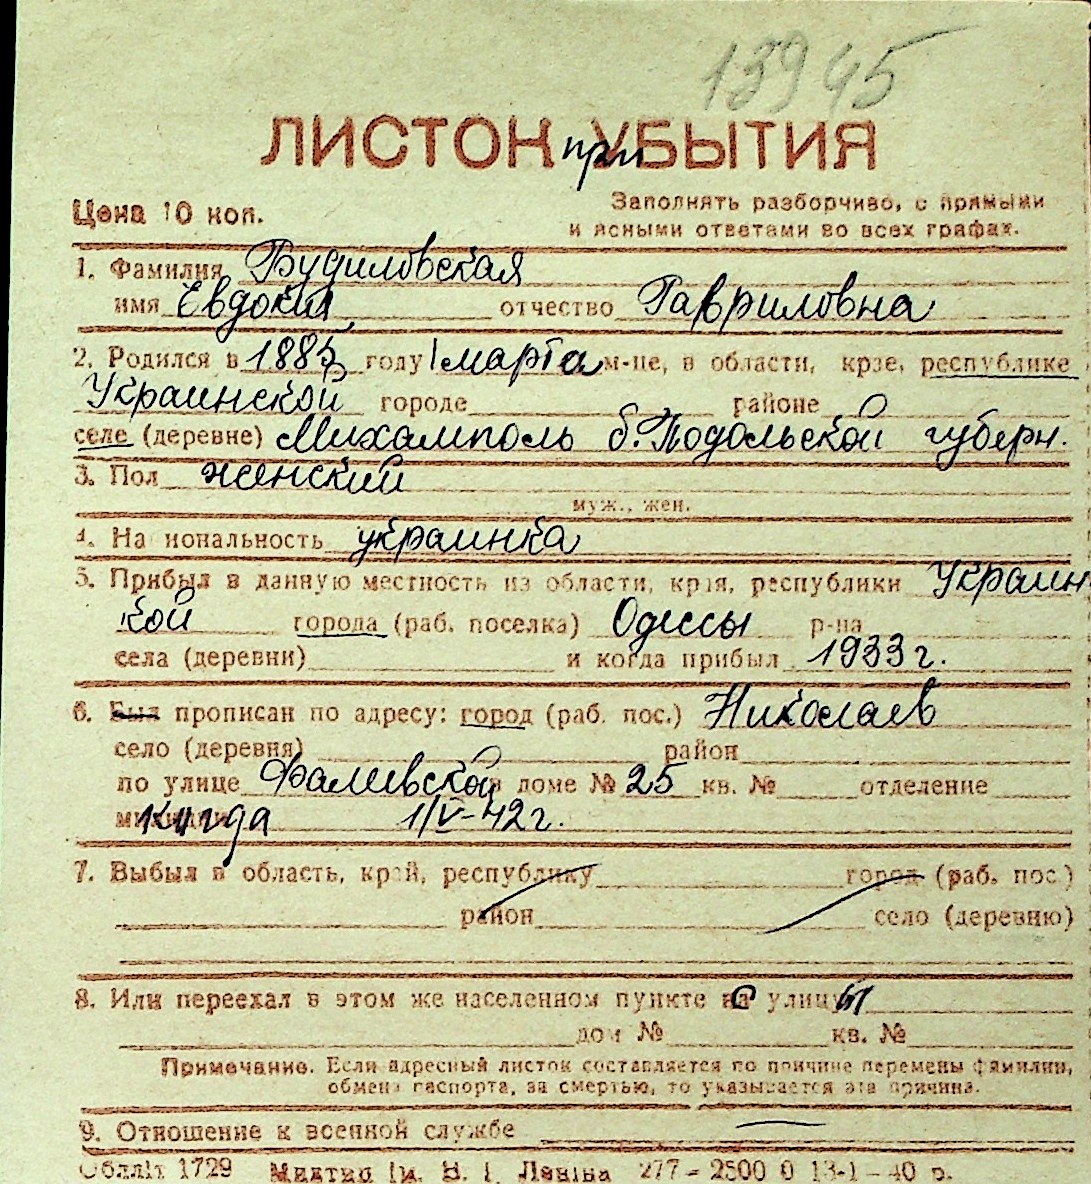 13945
ЛИСТОК при УБЫТИЯ
Цена 10 коп.
Заполнять разборчиво, с прямыми
и ясными ответами во всех графах.
1. Фамилия Будиловская
имя Евдокия отчество Гавриловна
2. Родился в 1885 году 1 марта м-це, в области, крае, республике
Украинской городе районе
селе (деревне) Михамполь б. Подольской губерн.
3. Пол женский
муж., жен.
4. Национальность украинка
5. Прибыл в данную местность из области, края, республики Украин
кой города (раб. поселка) Одессы р-на
села (деревни) и когда прибыл 1933 г.
6. Был прописан по адресу: город (раб. пос.) Николаев
село (деревня) район
по улице Фалиевской в доме № 25 кв. № отделение
милиции когда 1/V-42 г.
7. Выбыл в область, край, республику город (раб. пос)
район село (деревню)
8. Или переехал в этом же населенном пункте на с улицу ы
дом № кв. №
Примечание. Если адресный листок составляется по причине перемены фамилии,
обмена паспорта, за смертью, то указывается эта причина.
9. Отношение к военной службе —
Обллiт 1729 Миктип iм. В. I. Ленiна 277 – 2500 0 13-1 – 40 р.